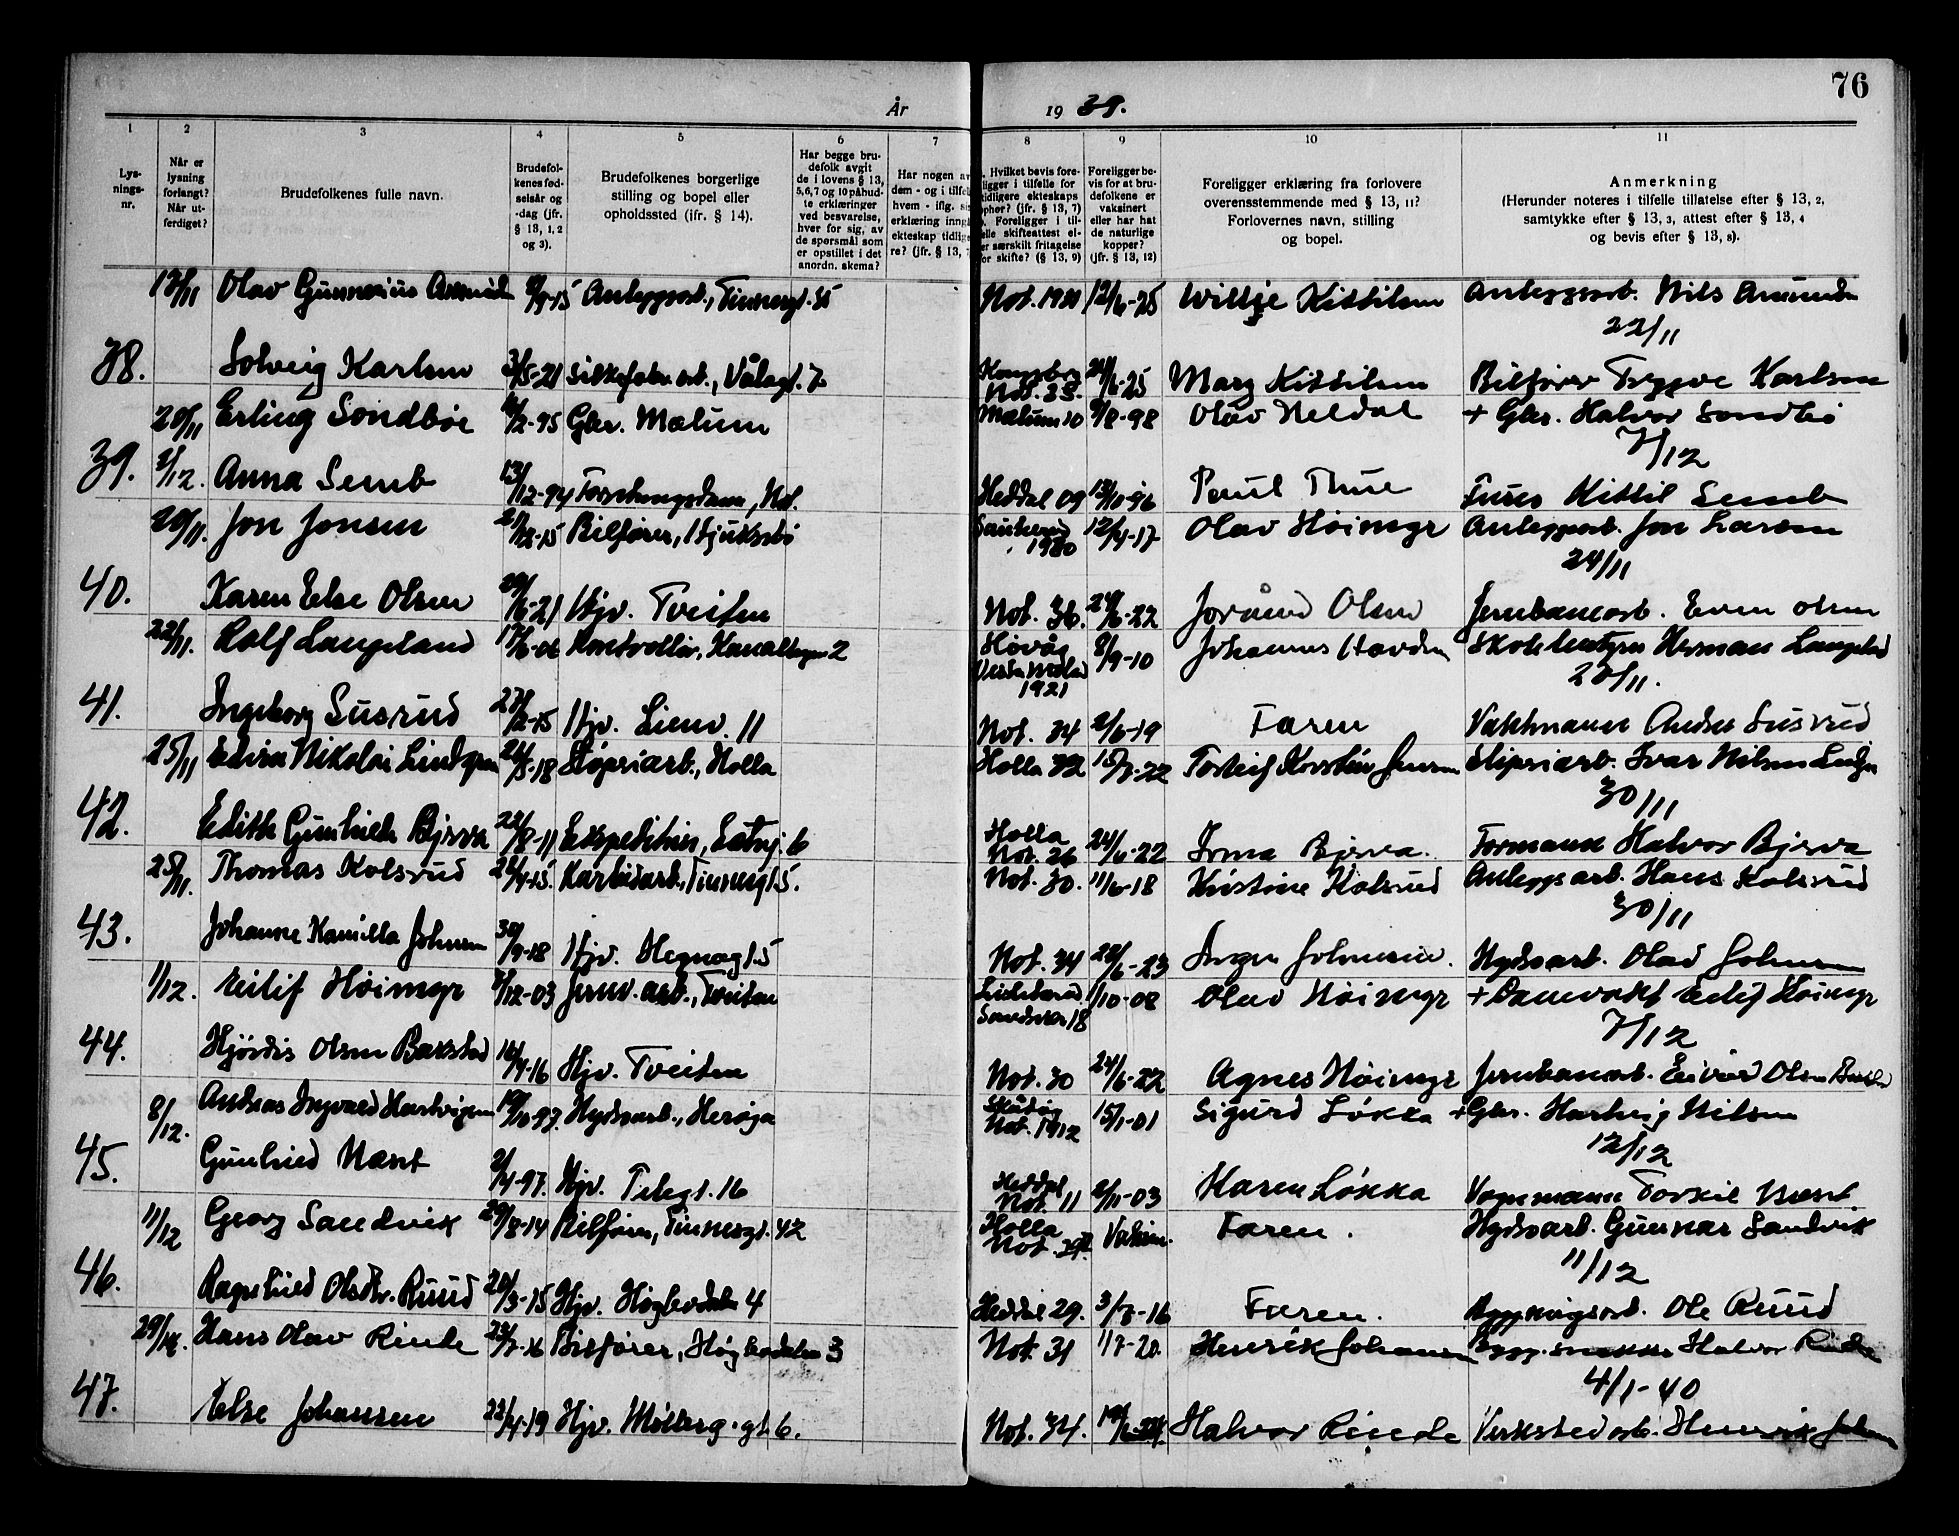 76
År 1939.
1 2 3 4 5 6 7 8 9 10 11
Lysnings-nr.
Når er lysning forlangt? Når utferdiget?
Brudefolkenes fulle navn.
Brudefolkenes fødselsår og -dag (jfr. § 13, 1, 2 og 3).
Brudefolkenes borgerlige stilling og bopel eller opholdssted (jfr. § 14).
Har begge brudefolk avgit de i lovens § 13, 5,6,7 og 10 påbudte erklæringer ved besvarelse, hver for sig, av de spørsmål som er opstillet i det anordn. skema?
Har nogen av dem - og i tilfelle hvem - iflg. sin erklæring inngått ekteskap tidligere? (jfr. § 13,
Hvilket bevis foreligger i tilfelle for tidligere ekteskaps ophør? (jfr. § 13, 7) Foreligger i tilfelle skifteattest eller særskilt fritagelse for skifte? (§ 13, 9)
Foreligger bevis for at brudefolkene er vaksinert eller har hat de naturlige kopper? (jfr. § 13, 12)
Foreligger erklæring fra forlovere overensstemmende med § 13, 11? Forlovernes navn, stilling og bopel.
Anmerkning (Herunder noteres i tilfelle tillatelse efter § 13, 2, samtykke efter § 13, 3, attest efter § 13, 4 og bevis efter § 13, 8).
13/11 Olav Gunnarius 15 Anleggsarb., Tinnegt. 55 Not. 12/6-25 Kittilsen Anleggsarb. Nils
22/11
38. Solveig Karlsen 3/5-21 Silkefabr.arb., Vålagt. 7 Kongsberg Not. 35. 24/6-25 Mary Kittilsen Bilfører Tryggve Karlsen
20/11 Erling Sondbøe 2-95 Gbr. Mælum Mælum 10 8-98 Olav Heldal + Gbr. Halvor Sondbø
7/12
39. 2/12. Anna Semb 13/12-94 Not. Heddal 09 13/10-96 Paul Thue Kittil Semb
20/11. Jon Jonsen 15 Bilfører, Hjuksebø 1930 12/4-17 Olav Høimyr Anleggsarb. Jon Larsen
24/11
40. Karen Else Olsen 29/6-21 Hjv. Tveiten Not. 36. 24/6-22 Olsen Jernbanearb. Even Olsen
22/11. Rolf Langeland 17/6-06 Kontrollør, Kanalhagen 2 Høvåg 1921 8/9-10 Johannes Skolebestyrer Herman Langeland
23/11.
41. Ingeborg Susrud 23/12-15 Hjv. Lienv. 11 Not. 34 2/6-19 Faren Vaktmann Anders Susrud
25/11 Edvin Nikolai Lindgren 18 Sliperiarb., Holla Holla 32 15/7-22 Jensen Sliperiarb. Ivar Nilsen
30/11
42. Edith Gunhild Bjerva 22/8-11 6 Holla Not. 26 24/6-22 Irma Bjerva. Formann Halvor Bjerva
25/11. Thomas Kolsrud 4-15. Karbidarb., Tinnegt. 5. Not. 30. 11/6-18 Kristine Kolsrud Anleggsarb. Hans Kolsrud
30/11
43. Johanne Kamilla Johnsen 30/9-18 Hjv. Hegnagt. 5 Not. 34 28/6-23 Johnsen. Hydroarb. Olav Johnsen
1/12. Eilif Høimyr 12-03 Jernv.arb., Tveiten Sandsvær 18 1/10-08 Olav Høimyr + Banevakt Eilif Høimyr
7/12
44. Hjördis Olsen Bakstad 16/4-16 Hjv. Tveiten Not. 30 24/6-22 Agnes Høimyr Jernbanearb. Eivind Olsen
8/12. Andreas Ingvald Hartvigsen 19/10-97. Hydroarb., Herøya Not. 1912 15/1-01 Sigurd Løkka + Gbr. Hartvig Nilsen
12/12
45. Gunhild Næset 2/4-97. Hjv. Telegt. 16 Heddal Not. 11 2/11-03 Karen Løkka Vognmann Torkil Næset
11/12 Georg Sandvik 29/8-14 Bilfører, Tinnegt. 42 Holla Not. Vaksin. Faren. Hydroarb. Gunnar Sandvik
11/12
46. Ragnhild Olsdtr. Ruud 20/3-15 Hjv. Høgbodalen 4 Heddal 29. 3/7-16 Faren. Ole Ruud
29/12. Hans Olav Rinde 23/7-16 Bilfører, Høgbodalen 3 Not. 31 1/7-20 Henrik Johansen Bygg.snekker Halvor Rinde
4/1-40
47. Else Johansen 22/4-19 Hjv. Møllerg.gt. 6. Not. 34. Halvor Rinde Verkstedarb. Henrik Johansen